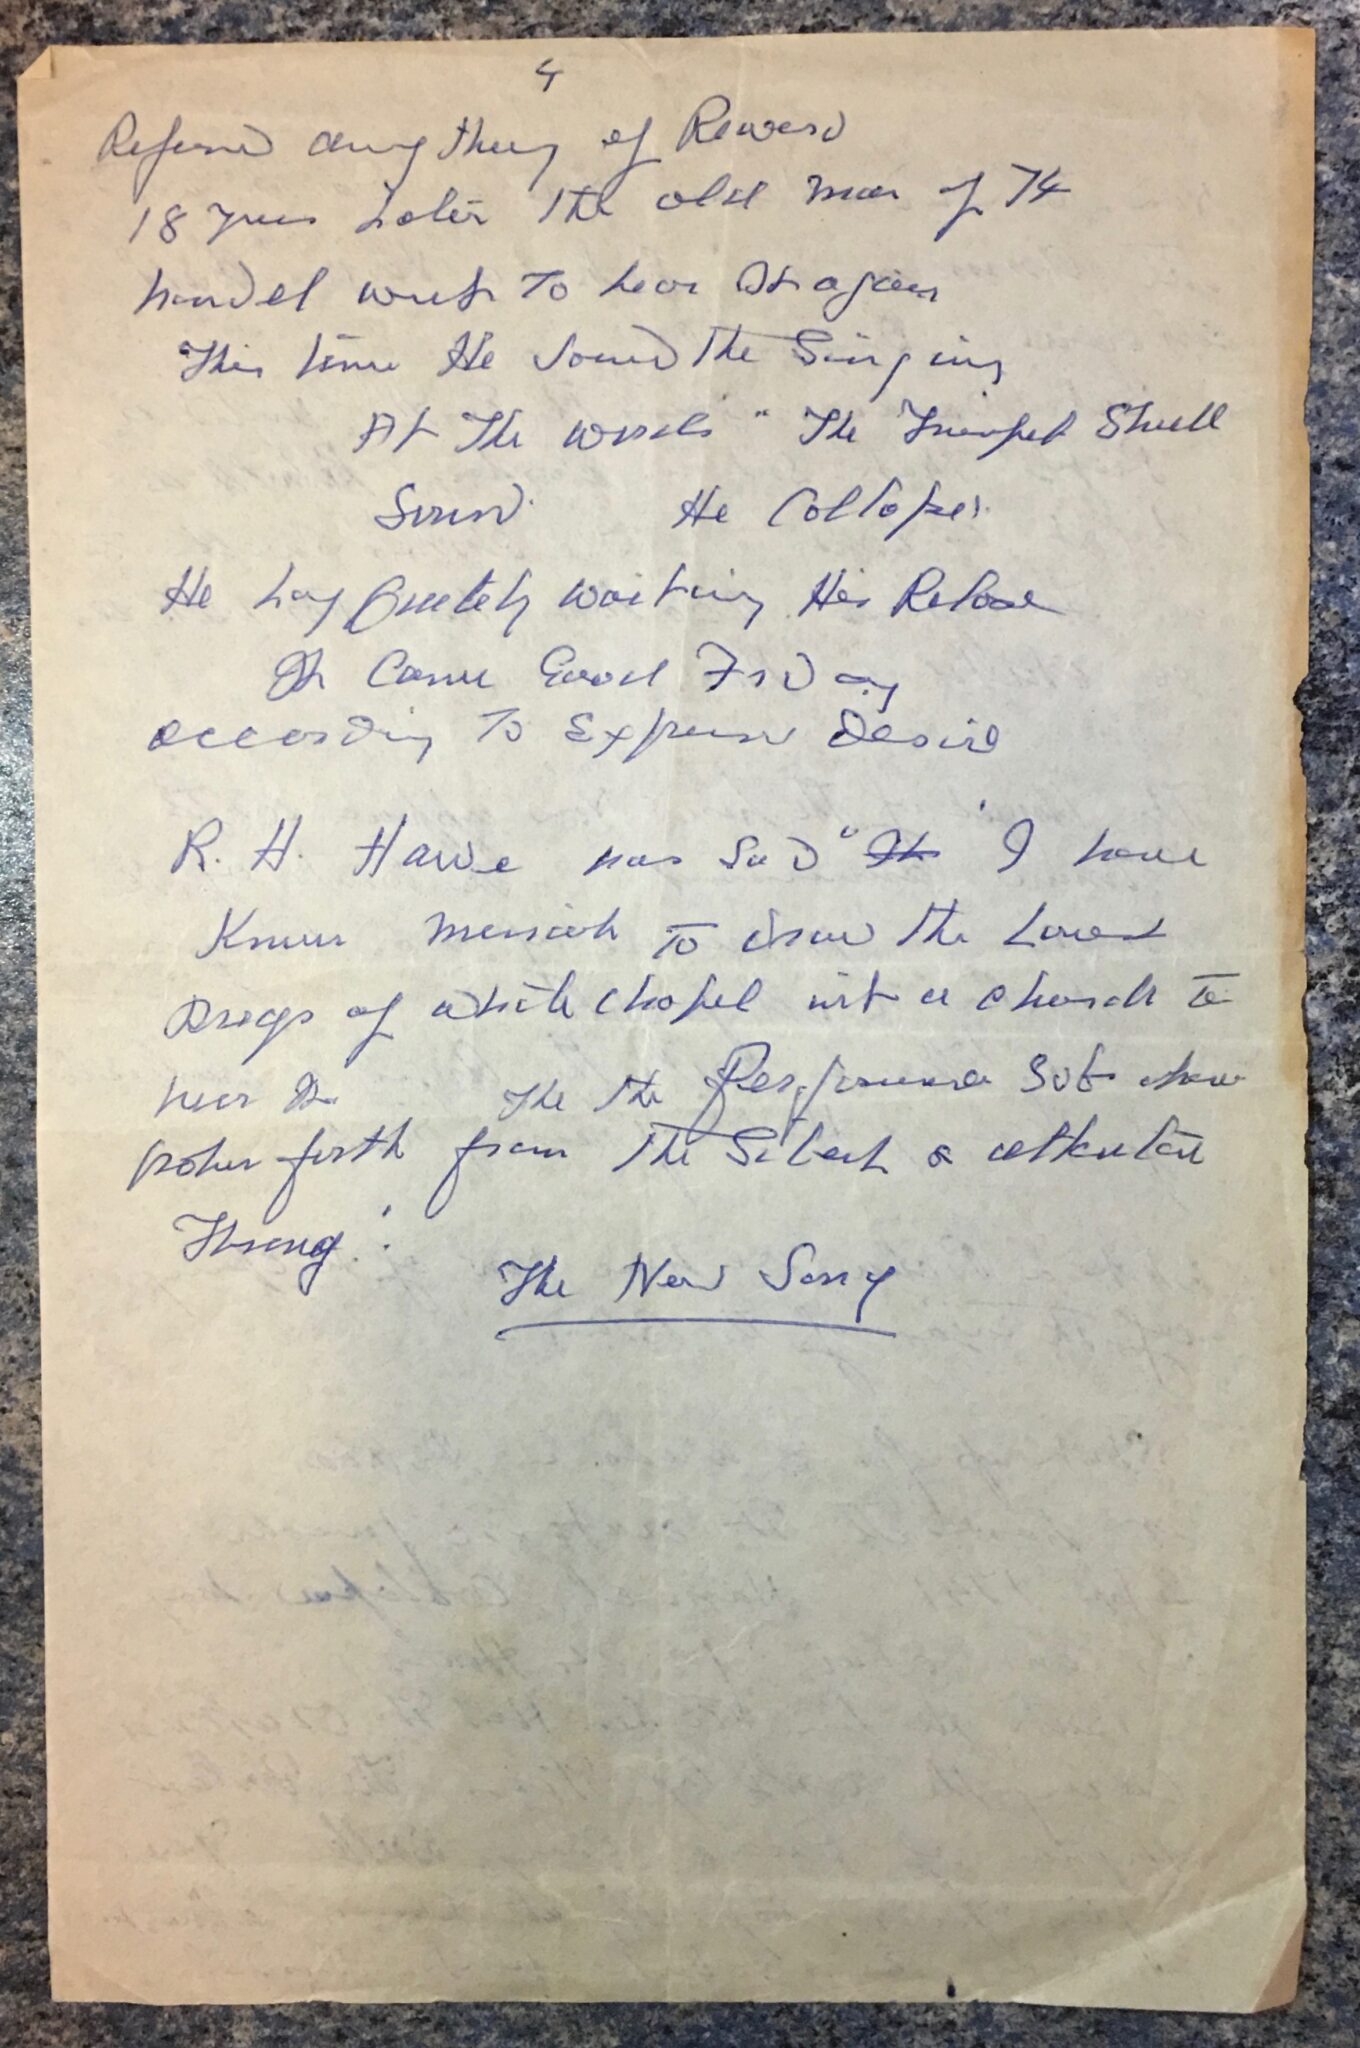 4
Refused anything of Reward
18 years Later The old man of 74
handel went To hear It again
This time He Joined The Singing
At The words " The Trumpet Shall
Sound. He Collapses
He Lay Quietely waiting His Release
It Came Good Friday
according To Express Desire
R. H. Hawe has Said " I have
Known Messiah To draw The Lowest
Dregs of white chapel into a church To
hear It The The Performance Sobs
forth from The Silent & attentive
Throng.
The New Song